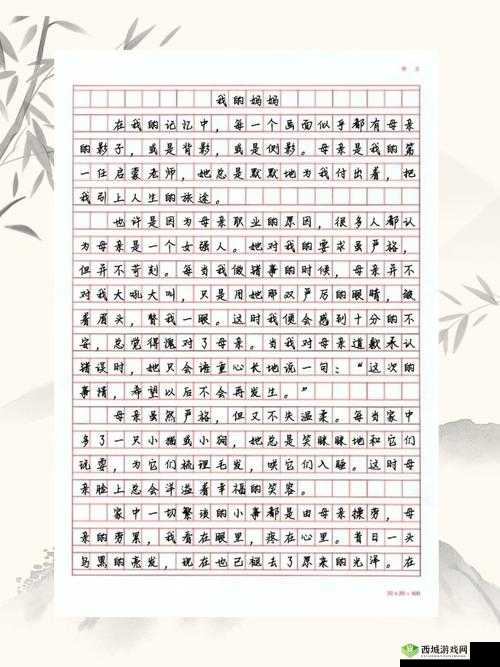 作 文
我的妈妈
在我的记忆中，每一个画面似乎都有母亲
的影子，或是背影，或是侧影。母亲是我的第
一任启蒙老师，她总是默默地为我付出着，把
我引上人生的旅途。
也许是因为母亲职业的原因，很多人都认
为母亲是一个女强人。她对我的要求虽严格，
但并不苛刻。每当我做错事的时候，母亲并不
对我大吼大叫，只是用她那双严厉的眼睛，皱
着眉头，瞥我一眼。这时我便会感到十分的不
安，总觉得愧对了母亲。当我对母亲道歉承认
错误时，她只会语重心长地说一句：“这次的
事情，希望以后不会再发生。”
母亲虽然严格，但又不失温柔。每当家中
多了一只小猫或小狗，她总是笑眯眯地和它们
玩耍，为它们梳理毛发，哄它们入睡。这时母
亲脸上总会洋溢着幸福的笑容。
家中一切繁琐的小事都是由母亲操劳，母
亲的劳累，我看在眼里，疼在心里。昔日一头
乌黑的亮发，现在也已褪去了原来的光泽。在
20×20＝400
西城游戏网